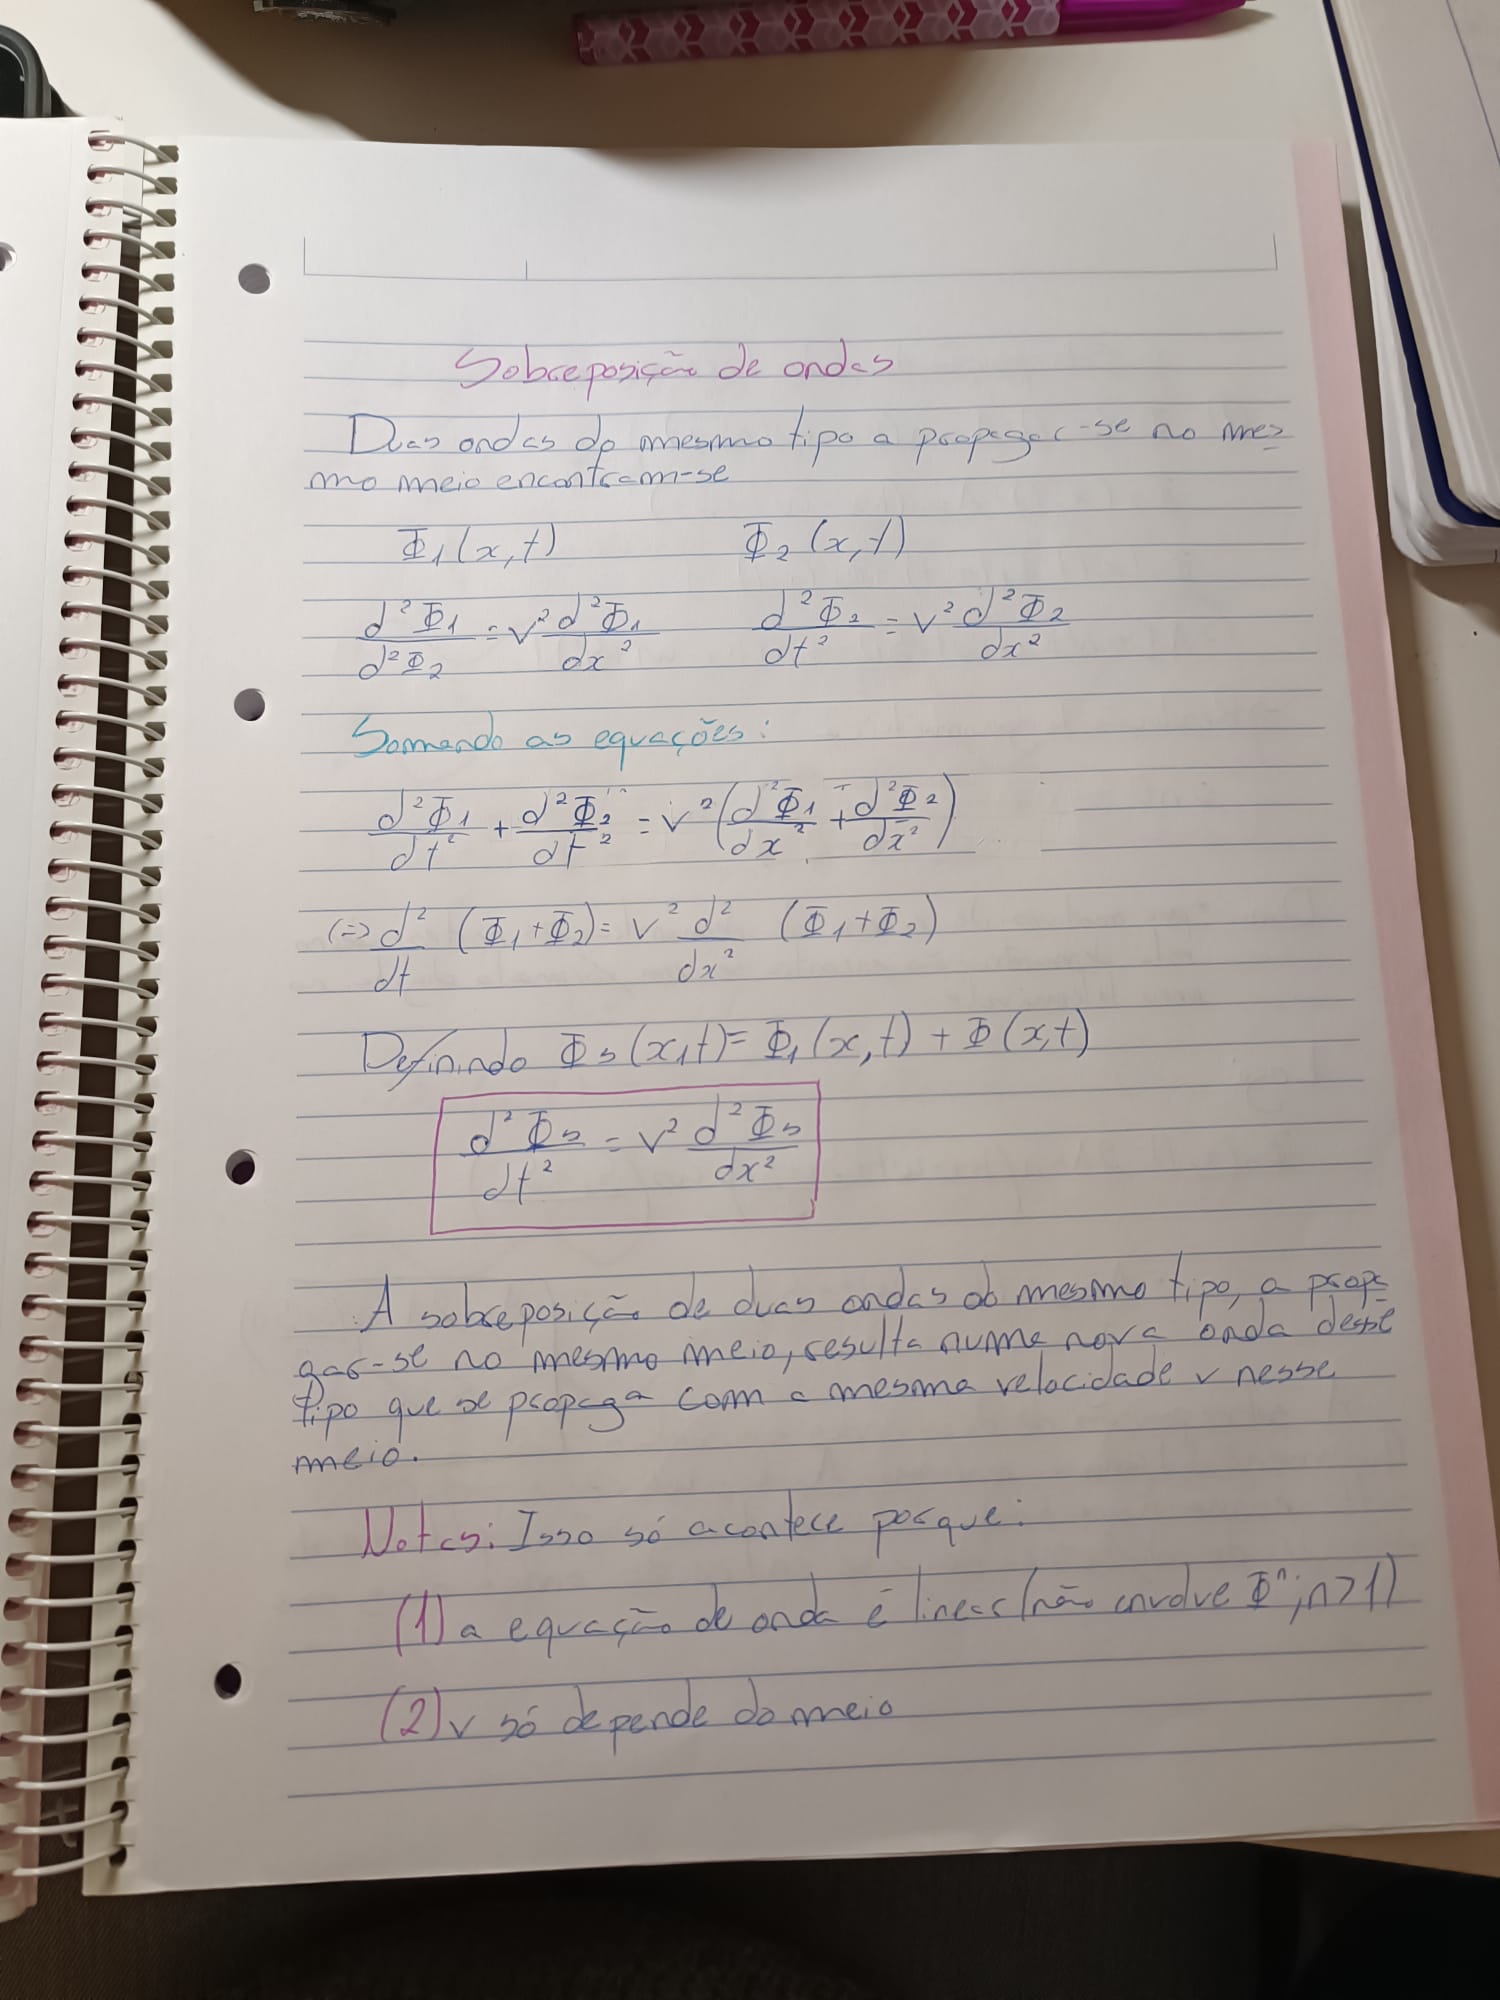 Sobreposição de ondas
Duas ondas do mesmo tipo a propagar-se no mes
mo meio encontram-se
Φ₁(x,t) Φ₂(x,t)
d²Φ₁/d²Φ₂ = v² d²Φ₁/dx² d²Φ₂/dt² = v² d²Φ₂/dx²
Somando as equações:
d²Φ₁/dt² + d²Φ₂/dt² = v² (d²Φ₁/dx² + d²Φ₂/dx²)
(=> d²/dt (Φ₁+Φ₂) = v² d²/dx² (Φ₁+Φ₂)
Definindo Φs(x,t) = Φ₁(x,t) + Φ(x,t)
d²Φs/dt² = v² d²Φs/dx²
A sobreposição de duas ondas do mesmo tipo, a propa
gar-se no mesmo meio, resulta numa nova onda desse
tipo que se propaga com a mesma velocidade v nesse
meio.
Notas: Isso só acontece porque:
(1) a equação de onda é linear (não envolve Φⁿ; n>1)
(2) v só depende do meio